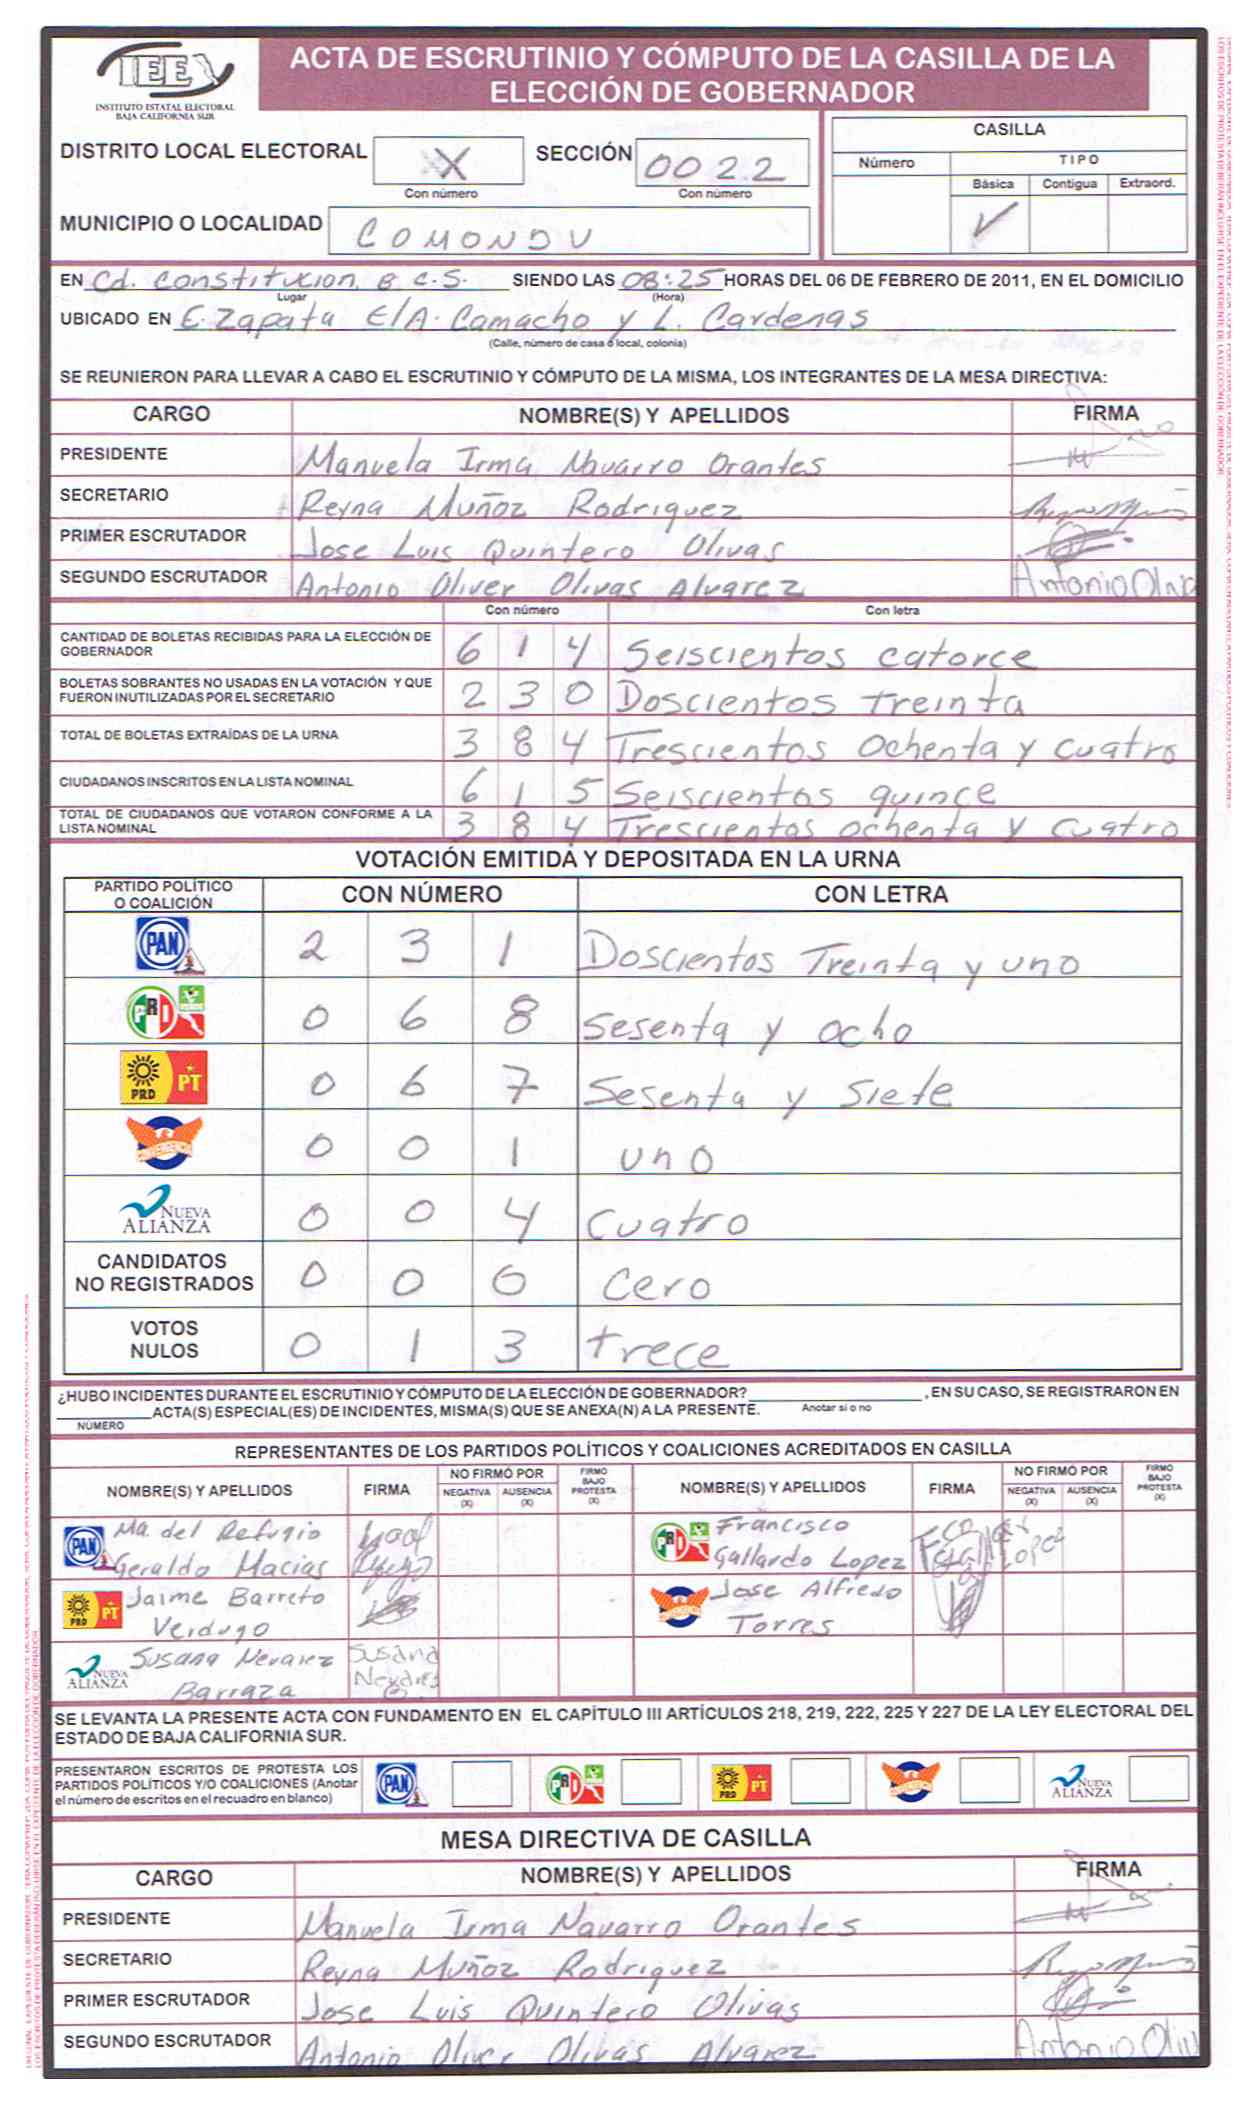 IEE
INSTITUTO ESTATAL ELECTORAL
BAJA CALIFORNIA SUR
ACTA DE ESCRUTINIO Y CÓMPUTO DE LA CASILLA DE LA
ELECCIÓN DE GOBERNADOR
DISTRITO LOCAL ELECTORAL X
Con número
SECCIÓN 0022
Con número
CASILLA
Número TIPO
Básica Contigua Extraord.
✓
MUNICIPIO O LOCALIDAD COMONDU
EN Cd. Constitucion, B C.S. SIENDO LAS 08:25 HORAS DEL 06 DE FEBRERO DE 2011, EN EL DOMICILIO
Lugar (Hora)
UBICADO EN E. Zapata E/A. Camacho y L. Cardenas
(Calle, número de casa o local, colonia)
SE REUNIERON PARA LLEVAR A CABO EL ESCRUTINIO Y CÓMPUTO DE LA MISMA, LOS INTEGRANTES DE LA MESA DIRECTIVA:
CARGO NOMBRE(S) Y APELLIDOS FIRMA
PRESIDENTE Manuela Irma Navarro Orantes
SECRETARIO Reyna Muñoz Rodriguez
PRIMER ESCRUTADOR Jose Luis Quintero Olivas
SEGUNDO ESCRUTADOR Antonio Oliver Olivas Alvarez Antonio Oliv
Con número Con letra
CANTIDAD DE BOLETAS RECIBIDAS PARA LA ELECCIÓN DE
GOBERNADOR 6 1 4 Seiscientos catorce
BOLETAS SOBRANTES NO USADAS EN LA VOTACIÓN Y QUE
FUERON INUTILIZADAS POR EL SECRETARIO 2 3 0 Doscientos treinta
TOTAL DE BOLETAS EXTRAÍDAS DE LA URNA 3 8 4 Trescientos Ochenta y cuatro
CIUDADANOS INSCRITOS EN LA LISTA NOMINAL 6 1 5 Seiscientos quince
TOTAL DE CIUDADANOS QUE VOTARON CONFORME A LA
LISTA NOMINAL 3 8 4 Trescientos ochenta y cuatro
VOTACIÓN EMITIDA Y DEPOSITADA EN LA URNA
PARTIDO POLÍTICO
O COALICIÓN CON NÚMERO CON LETRA
PAN 2 3 1 Doscientos Treinta y uno
PRI VERDE 0 6 8 Sesenta y ocho
PRD PT 0 6 7 Sesenta y Siete
CONVERGENCIA 0 0 1 uno
NUEVA ALIANZA 0 0 4 Cuatro
CANDIDATOS
NO REGISTRADOS 0 0 0 Cero
VOTOS
NULOS 0 1 3 trece
¿HUBO INCIDENTES DURANTE EL ESCRUTINIO Y CÓMPUTO DE LA ELECCIÓN DE GOBERNADOR? , EN SU CASO, SE REGISTRARON EN
ACTA(S) ESPECIAL(ES) DE INCIDENTES, MISMA(S) QUE SE ANEXA(N) A LA PRESENTE. Anotar si o no
NÚMERO
REPRESENTANTES DE LOS PARTIDOS POLÍTICOS Y COALICIONES ACREDITADOS EN CASILLA
NOMBRE(S) Y APELLIDOS FIRMA NO FIRMÓ POR NEGATIVA (X) AUSENCIA (X) FIRMÓ BAJO PROTESTA (X) NOMBRE(S) Y APELLIDOS FIRMA NO FIRMÓ POR NEGATIVA (X) AUSENCIA (X) FIRMÓ BAJO PROTESTA (X)
PAN Ma. del Refugio
Geraldo Macias
PRI Francisco
Gallardo Lopez
PRD PT Jaime Barreto
Verdugo
CONVERGENCIA Jose Alfredo
Torres
NUEVA ALIANZA Susana Nevarez
Barraza
Susana
SE LEVANTA LA PRESENTE ACTA CON FUNDAMENTO EN EL CAPÍTULO III ARTÍCULOS 218, 219, 222, 225 Y 227 DE LA LEY ELECTORAL DEL
ESTADO DE BAJA CALIFORNIA SUR.
PRESENTARON ESCRITOS DE PROTESTA LOS
PARTIDOS POLÍTICOS Y/O COALICIONES (Anotar
el número de escritos en el recuadro en blanco)
PAN PRI PRD PT CONVERGENCIA NUEVA ALIANZA
MESA DIRECTIVA DE CASILLA
CARGO NOMBRE(S) Y APELLIDOS FIRMA
PRESIDENTE Manuela Irma Navarro Orantes
SECRETARIO Reyna Muñoz Rodriguez
PRIMER ESCRUTADOR Jose Luis Quintero Olivas
SEGUNDO ESCRUTADOR Antonio Oliver Olivas Alvarez Antonio Oliv